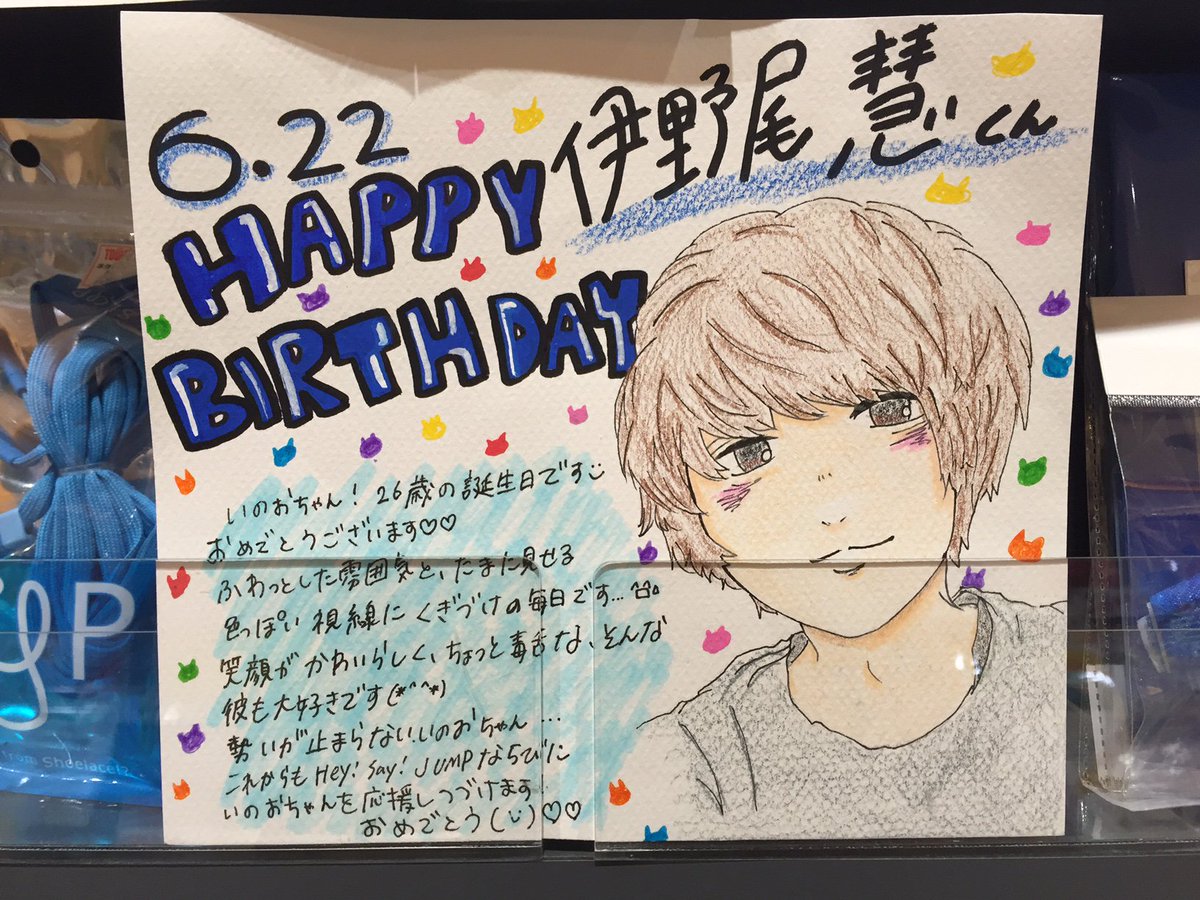 6.22
伊野尾 慧くん
HAPPY
BIRTHDAY
いのおちゃん！ 26歳の誕生日です
おめでとうございます♡♡
ふわっとした雰囲気と、たまに見せる
色っぽい視線に くぎづけの毎日です...
笑顔が かわいらしく、ちょっと毒舌な、そんな
彼も大好きです(*^^*)
勢いが止まらない、いのおちゃん...
これからも Hey! Say! JUMPならびに
いのおちゃんを応援しつづけます
おめでとう(ü)♡♡
yP
from Shoelace!?